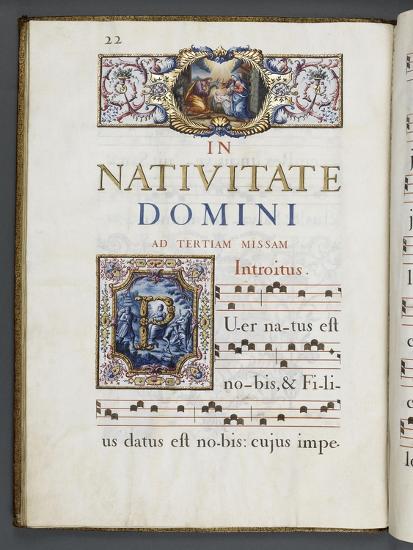 22
IN
NATIVITATE
DOMINI
AD TERTIAM MISSAM
Introitus.
PU-er na-tus eſt
no-bis, & Fi-li-
us datus eſt no-bis: cujus impe-